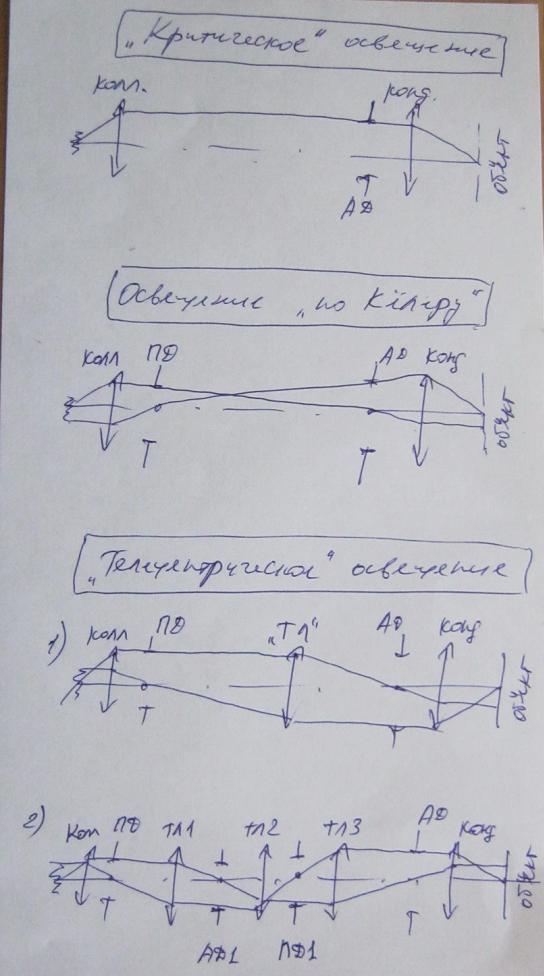 „Критическое" освещение
Колл. конд.
АД
объект
Освещение „по Кёлеру"
Колл ПД АД Конд
объект
„Телецентрическое" освещение
1) Колл ПД „ТЛ" АД Конд
Т
объект
2) Кол ПД ТЛ1 ТЛ2 ТЛ3 АД Конд
объект
АД1 ПД1